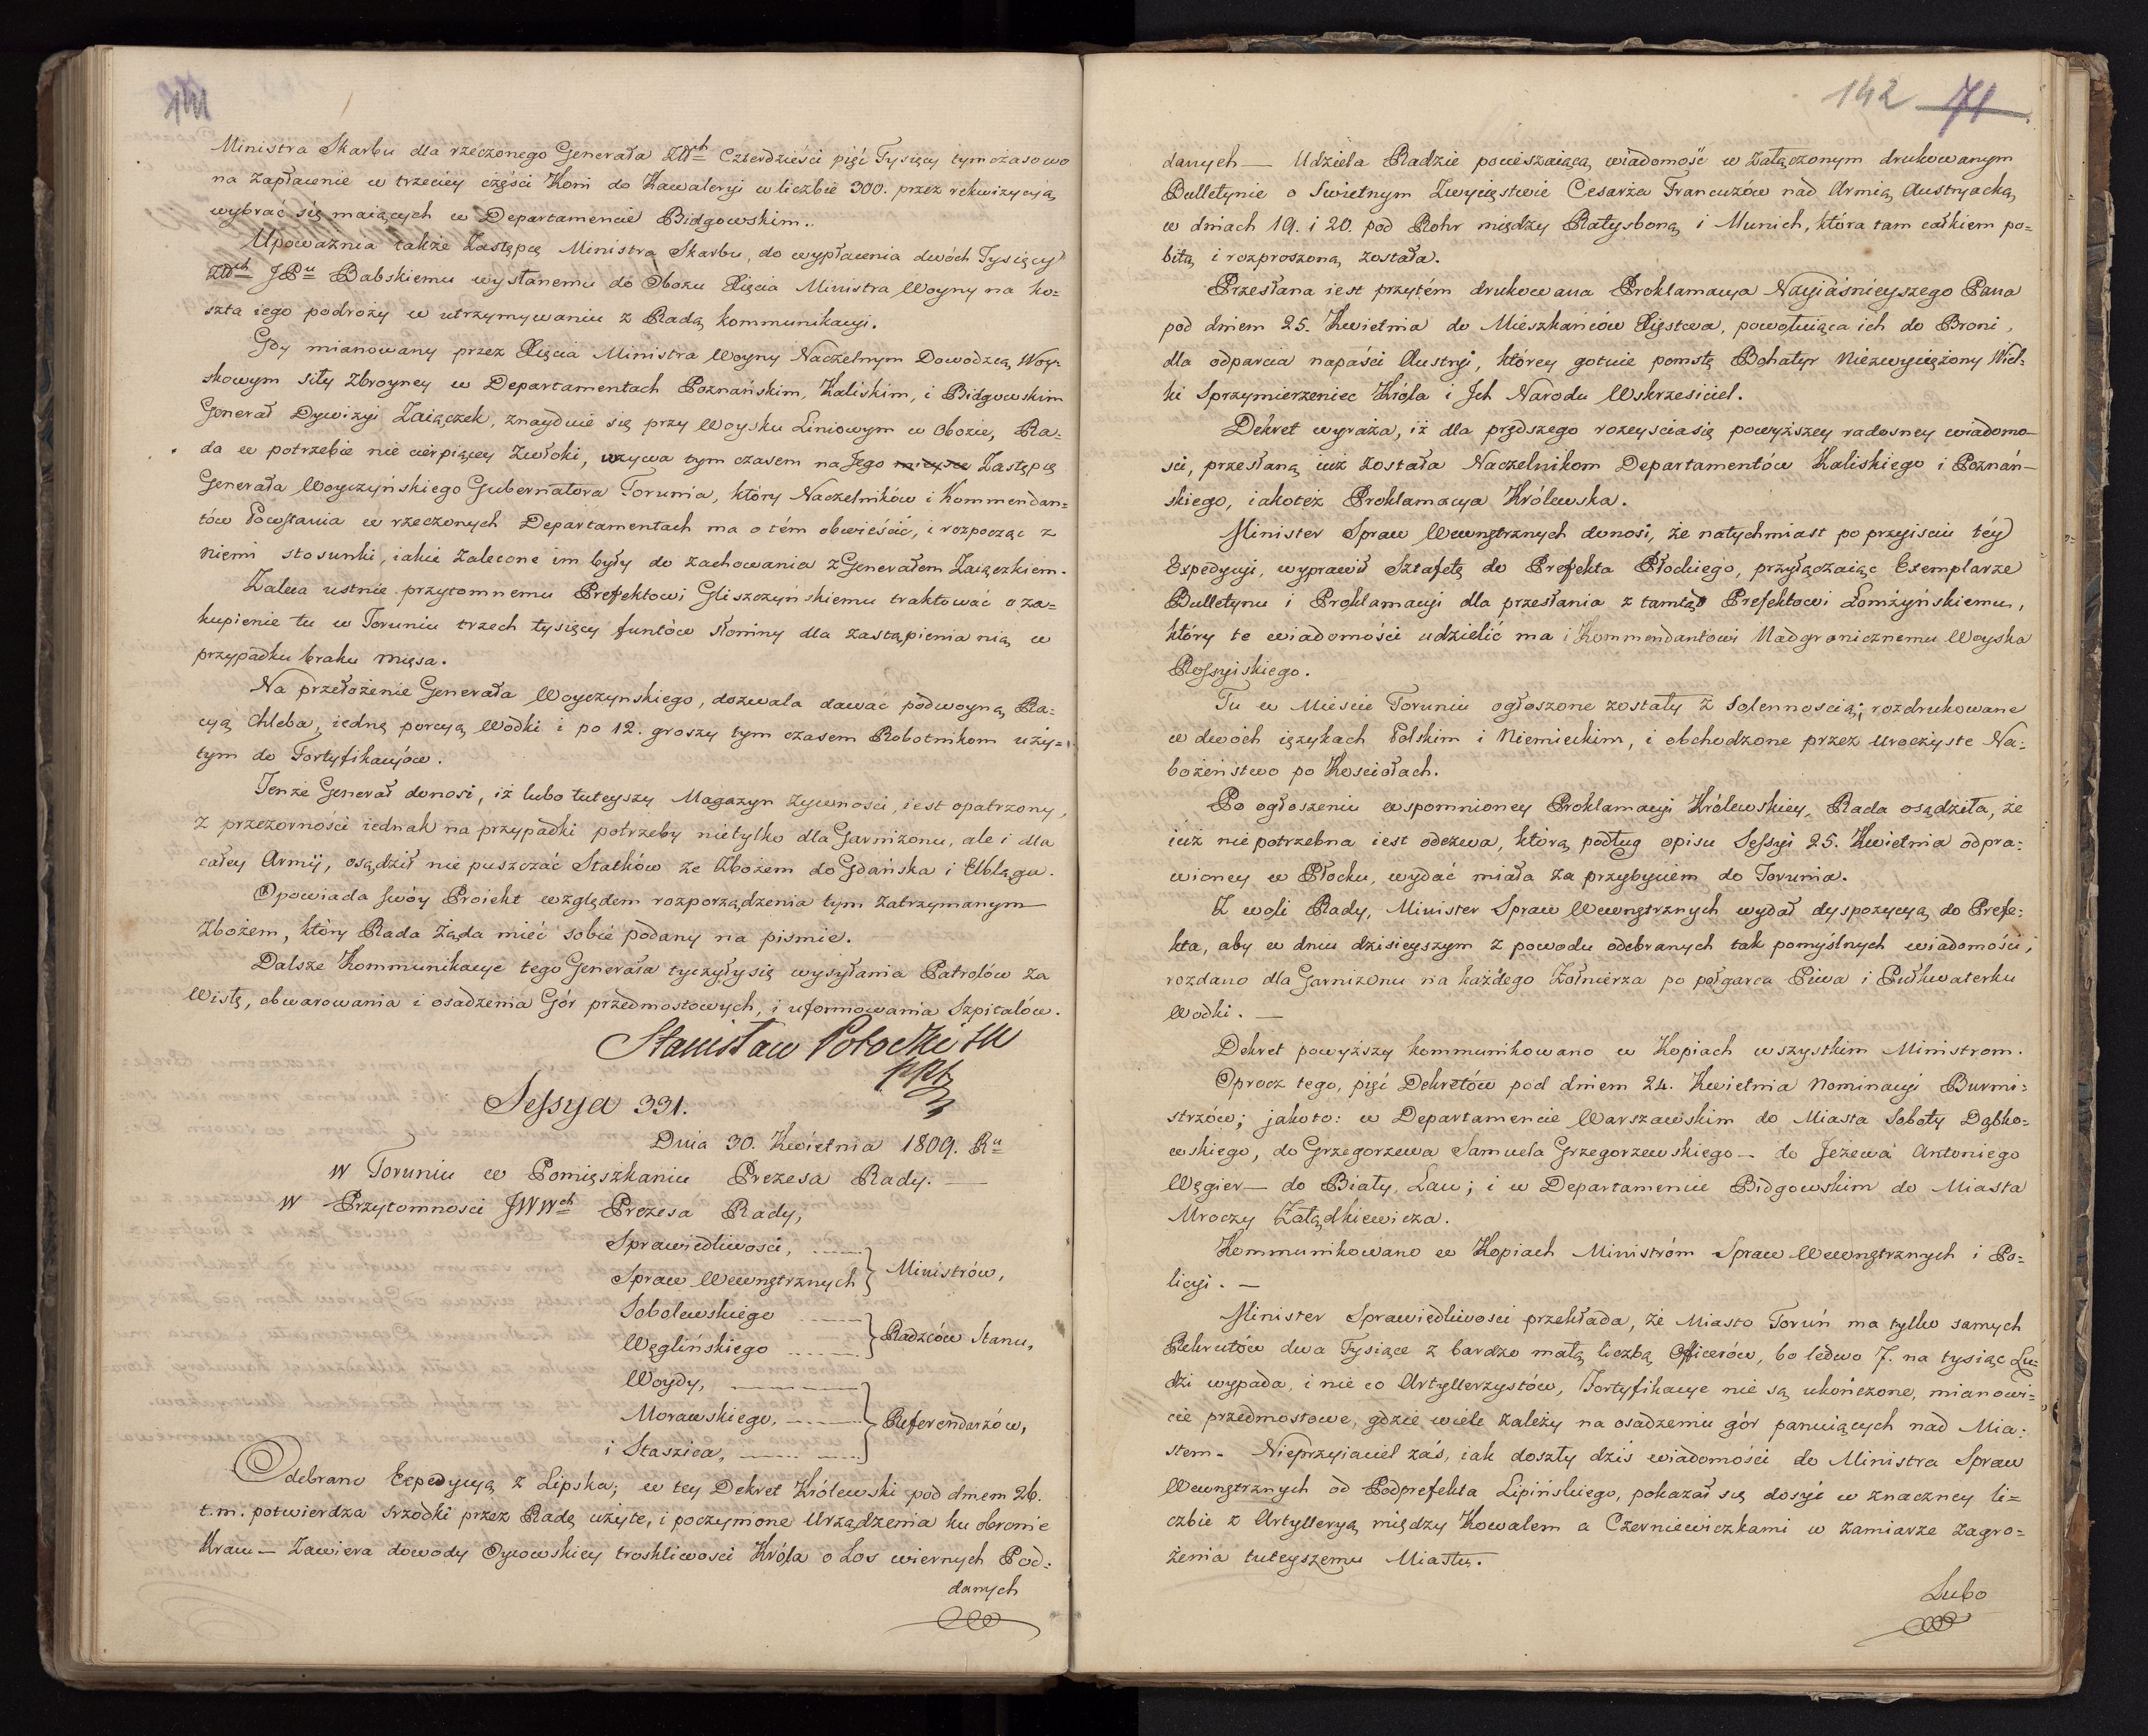 141
Ministra Skarbu dla rzeczonego Generała Złłch Czterdzieści pięć Tysięcy tymczasowo
na zapłacenie w trzeciey części Koni do Kawaleryi w liczbie 300. przez rekwizycyią
wybrać się maiących w Departamencie Bidgowskim.
Upoważnia także Zastępcę Ministra Skarbu, do wypłacenia dwóch Tysięcy
Złłch JPu Babskiemu wysłanemu do Obozu Xięcia Ministra Woyny na ko=
szta iego podroży w utrzymywaniu z Radą kommunikacyi.
Gdy mianowany przez Xięcia Ministra Woyny Naczelnym Dowodzcą Woy=
skowym siły zbroyney w Departamentach Poznańskim, Kaliskim, i Bidgowskim
Generał Dywizyi Zaiączek, znayduie się przy Woysku Liniowym w Obozie, Ra=
da w potrzebie nie cierpiącey Zwłoki, wzywa tym czasem na Jego mieysce Zastępcę
Generała Woyczyńskiego Gubernatora Torunia, który Naczelników i Kommendan=
tów Powstania w rzeczonych Departamentach ma o tém obwieścić, i rozpocząc z
niemi stosunki, iakie zalecone im były do zachowania z Generałem Zaiączkiem.
Zaleca ustnie przytomnemu Prefektowi Gliszczynskiemu traktować o za=
kupienie tu w Toruniu trzech tysięcy funtów słoniny dla zastąpienia nią w
przypadku braku mięsa.
Na przełożenie Generała Woyczynskiego, dozwala dawać podwoyną Ra=
cyą Chleba, iedną porcyą Wodki i po 12. groszy tym czasem Robotnikom uży=
tym do Fortyfikacyów.
Tenże Generał donosi, iż lubo tuteyszy Magazyn żywności, iest opatrzony,
z przezorności iednak na przypadki potrzeby nietylko dla Garnizonu, ale i dla
całey Armij, osądził nie puszczać Statków ze Zbożem do Gdańska i Elbląga.
Opowiada swóy Proiekt względem rozporządzenia tym zatrzymanym
Zbożem, który Rada żąda mieć sobie podany na pismie.
Dalsze Kommunikacye tego Generała tyczyły się wysyłania Patrolów za
Wisłę, obwarowania i osadzenia Gór przedmostowych, i uformowania Szpitalów.
Stanisław Potocki
Sessya 331.
Dnia 30. Kwietnia 1809. Ru
w Toruniu w Pomięszkaniu Prezesa Rady.
w Przytomnosci JWWch Prezesa Rady,
Sprawiedliwosci,
Spraw Wewnętrznych } Ministrów,
Sobolewskiego
Węglińskiego } Radzców Stanu,
Woydy,
Morawskiego, } Referendarzów,
i Staszica,
Odebrano Expedycyą z Lipska; w tey Dekret Królewski pod dniem 26.
t.m. potwierdza srzodki przez Radę użyte, i poczynione Urządzenia ku obronie
Kraiu — Zawiera dowody Oycowskiey troskliwosci Króla o Los wiernych Pod=
danych
142 71
danych — Udziela Radzie pocieszaiącą wiadomość w załączonym drukowanym
Bulletynie o Swietnym Zwycięstwie Cesarza Francuzów nad Armią Austryacką
w dniach 19. i 20. pod Rohr między Ratysboną i Munich, która tam całkiem po=
bitą i rozproszoną została.
Przesłana iest przytém drukowana Proklamacya Nayiaśnieyszego Pana
pod dniem 25. Kwietnia do Mieszkańców Xięstwa, powołuiąca ich do Broni,
dla odparcia napaści Austryi, którey gotuie pomstę Bohatyr Niezwyciężony Wiel=
ki Sprzymierzeniec Króla i Jch Narodu Wskrzesiciel.
Dekret wyraża, iż dla prędszego rozeyscia się powyższey radosney wiadomo=
sci, przesłaną iuż została Naczelnikom Departamentów Kaliskiego i Poznań=
skiego, iakoteż Proklamacya Królewska.
Minister Spraw Wewnętrznych donosi, że natychmiast po przyiściu téy
Expedycyi, wyprawił Sztafetę do Prefekta Płockiego, przyłączaiąc Exemplarze
Bulletynu i Proklamacyi dla przesłania z tamtąd Prefektowi Łomżyńskiemu,
który te wiadomości udzielić ma i Kommendantowi Nadgranicznemu Woyska
Rossyiskiego.
Tu w Mieście Toruniu ogłoszone zostały z Solennoscią; rozdrukowane
w dwoch ięzykach Polskim i Niemieckim, i obchodzone przez uroczyste Na=
bożeństwo po Kosciołach.
Po ogłoszeniu wspomnioney Proklamacyi Królewskiey, Rada osądziła, że
iuż niepotrzebna iest odezwa, którą podług opisu Sessyi 25. Kwietnia odpra=
wioney w Płocku, wydać miała za przybyciem do Torunia.
Z woli Rady, Minister Spraw Wewnętrznych wydał dyspozycyą do Prefe=
kta, aby w dniu dzisieyszym z powodu odebranych tak pomyślnych wiadomości,
rozdano dla Garnizonu na każdego Żołnierza po półgarca Piwa i Pułkwaterku
Wodki. —
Dekret powyższy kommunikowano w Kopiach wszystkim Ministrom.
Oprocz tego, pięć Dekretów pod dniem 24. Kwietnia Nominacyi Burmi=
strzów; jakoto: w Departamencie Warszawskim do Miasta Soboty Dąbko=
wskiego, do Grzegorzewa Samuela Grzegorzewskiego — do Jeżewa Antoniego
Węgier — do Biały, Lau; i w Departamencie Bidgowskim do Miasta
Mroczy Załądkiewicza.
Kommunikowano w Kopiach Ministróm Spraw Wewnętrznych i Po=
licyi. —
Minister Sprawiedliwosci przekłada, że Miasto Toruń ma tylko samych
Rekrutów dwa Tysiące z bardzo małą liczbą Officerów, bo ledwo 7. na tysiąc Lu=
dzi wypada, i nie co Artyllerzystów, Fortyfikacye nie są ukończone, mianowi=
cie przedmostowe, gdzie wiele zależy na osadzeniu gór panuiących nad Mia=
stem. Nieprzyiaciel zaś, iak doszły dziś wiadomości do Ministra Spraw
Wewnętrznych od Podprefekta Lipińskiego, pokazał się dosyć w znaczney li=
czbie z Artylleryą między Kowalem a Czerniewiczkami w zamiarze zagro=
żenia tuteyszemu Miastu.
Lubo